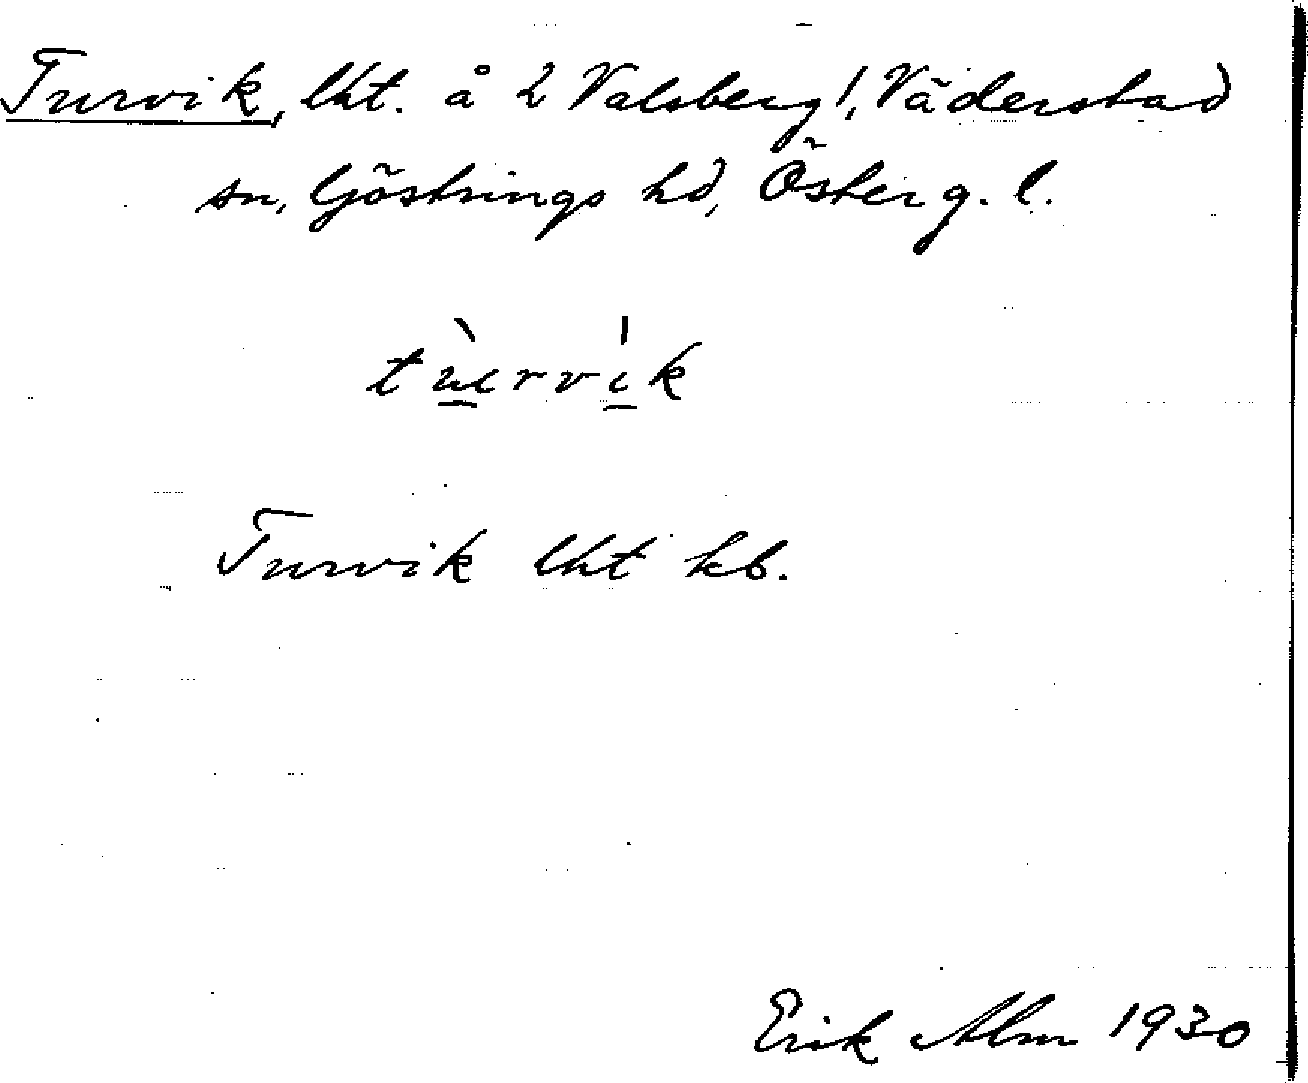 Turvik, lht. å 2 Valsberg!, Väderstad
sn, Göstrings hd, Österg. l.
tùrvík
Turvik lht kb.
Erik Alm 1930